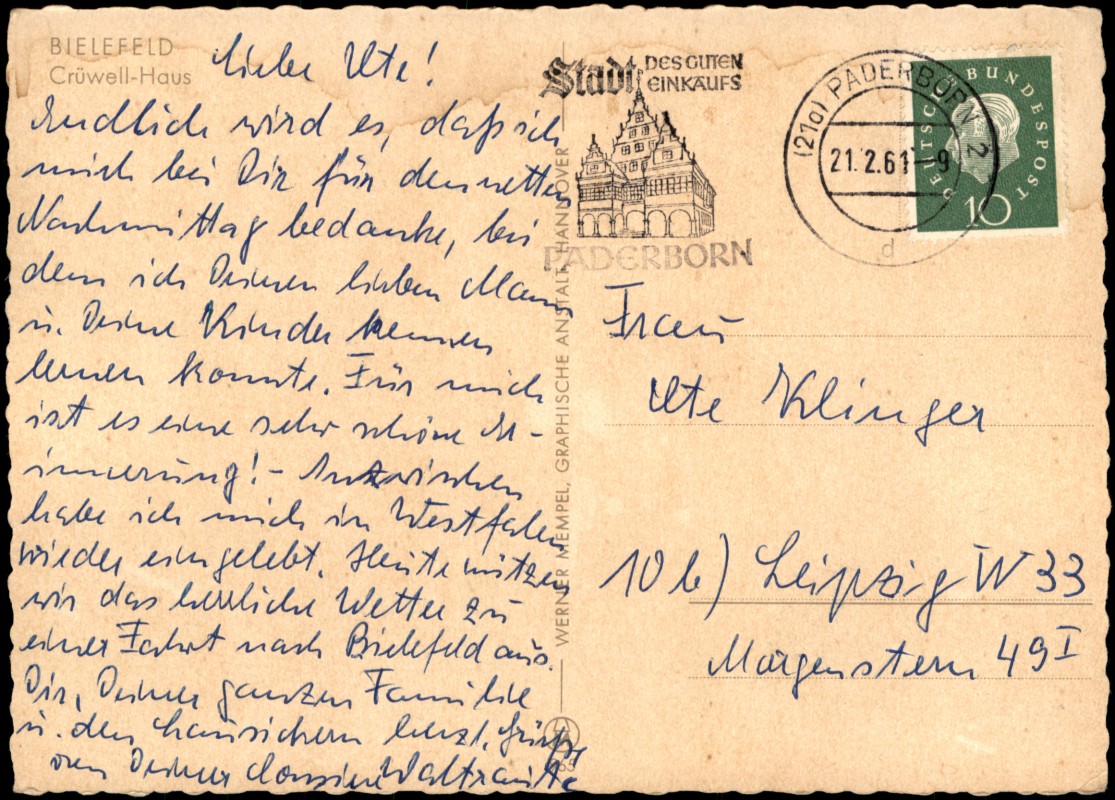 BIELEFELD
Crüwell-Haus
Liebe Ute!
Endlich wird es, daß ich
mich bei Dir für den netten
Nachmittag bedanke, bei
dem ich Deinen lieben Mann
u. Deine Kinder kennen
lernen konnte. Für mich
ist es eine sehr schöne Er-
innerung! - Inzwischen
habe ich mich in Westfalen
wieder eingelebt. Heute nützen
wir das herrliche Wetter zu
einer Fahrt nach Bielefeld aus.
Dir, Deiner ganzen Familie
u. den herzl. Grüße
von Deiner Cousine Waltraute
WERNER MEMPEL, GRAPHISCHE ANSTALT, HANNOVER
Stadt DES GUTEN
EINKAUFS
PADERBORN
(21a) PADERBORN 2
21.2.61-9
d
DEUTSCHE BUNDESPOST
10
Frau
Ute Klinger
10b) Leipzig W 33
Morgenstern 49 I